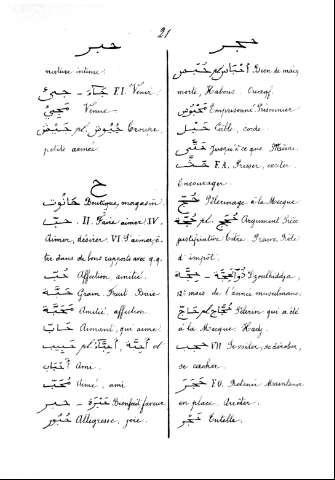 21
حبر
mixture intime.
جَاءَ - جِىءْ F.I. Venir.
مَجِىْء Venue
جَيْش pl. جُيُوش Troupe
petite armée
ح
حَانُوت Boutique, magasin.
حَبَّ. II. Faire aimer IV.
Aimer, désirer VI S'aimer, ê-
tre dans de bons rapports avec q.q.
حُبّ Affection amitié.
حَبَّة Grain Fruit Baie
مَحَبَّة Amitié, affection
حَابّ Aimant, qui aime
حَبِيب pl. أَحِبَّاء, أَحِبَّة et
أَحْبَاب Ami.
مُحَبّ Aimé, ami
حبر - حَبْرَة Bienfait faveur
حُبُور Allegresse, joie.
حجر
حُبْس pl. أَحْبَاس Bien de main
morte, Habous. Ouakf.
مَحْبُوس Emprisonné Prisonnier
حَبْل Cable, corde.
حَتَّى Jusqu'à ce que, Même.
حَثَّ F.A. Presser, exciter
Encourager.
حَجّ Pélerinage à la Mecque
حُجَّة pl. حُجَج Argument Pièce
justificative Titre Preuve Rôle
d'impôt.
حِجَّة - ذُو الحِجَّة Dzoulhiddja,
12e mois de l'année musulmane.
حَاجّ pl. حُجَّاج Pélerin qui a été
à la Mecque Hadj.
حجب VII Se voiler, se dérober,
se cacher.
حَجَرَ F.O. Retenir Maintenir
en place Arrêter.
حَجْر Tutelle.